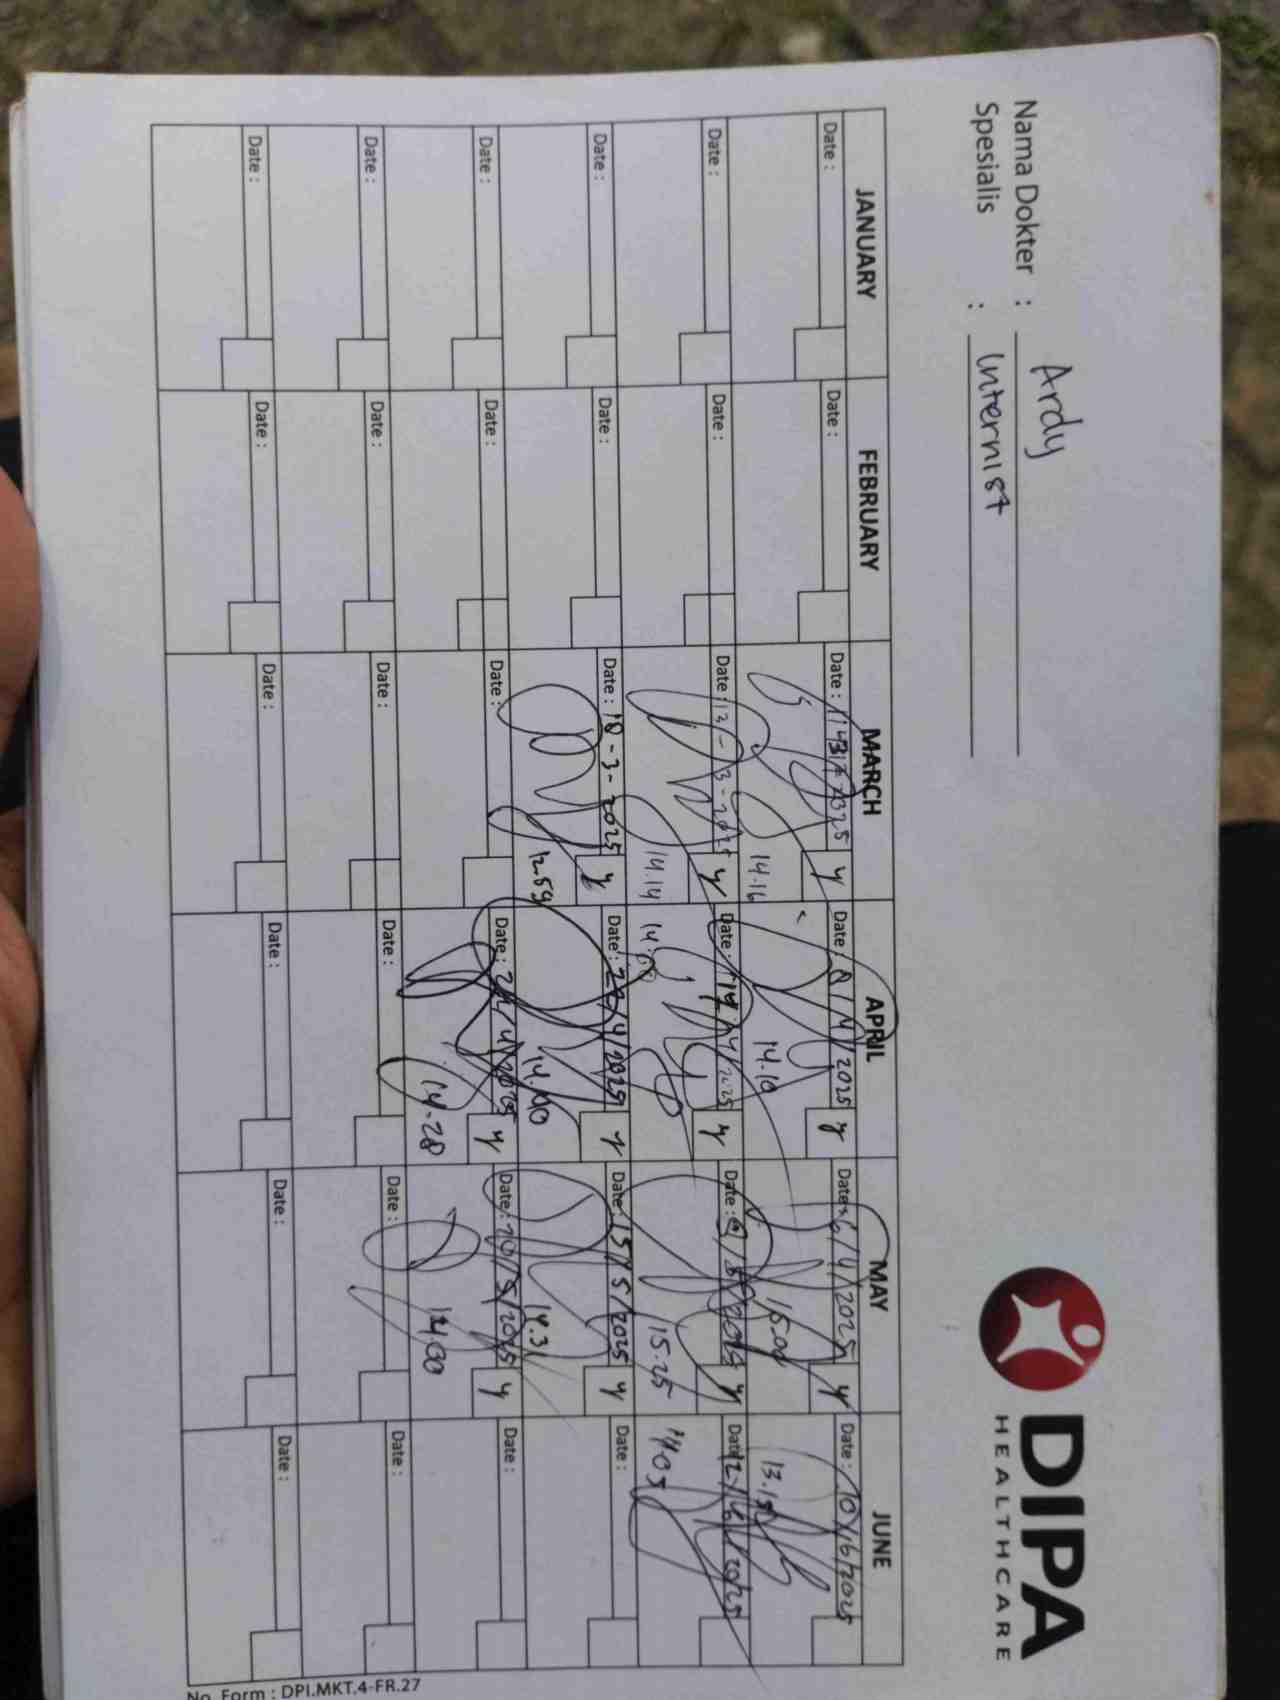 DIPA
HEALTHCARE
Nama Dokter : Ardy
Spesialis : Internist
JANUARY FEBRUARY MARCH APRIL MAY JUNE
Date : Date : Date : Date : 8/4/2025 y Date : 6/4/2025 y Date : 10/6/2025
14.16 14.10 13.15
Date : Date : Date : 13-3-2025 y Date : 17/4/2025 y Date : y Date : 12/6/2025
14.14 15.25 14.05
Date : Date : Date : 18-3-2025 y Date : 22/4/2025 y Date : 15/5/2025 y Date :
12.59 14.00 14.3
Date : Date : Date : Date : 24/4/2025 y Date : 20/5/2025 y Date :
14.28 14.00
Date : Date : Date : Date : Date : Date :
Date : Date : Date : Date : Date : Date :
No. Form : DPI.MKT.4-FR.27